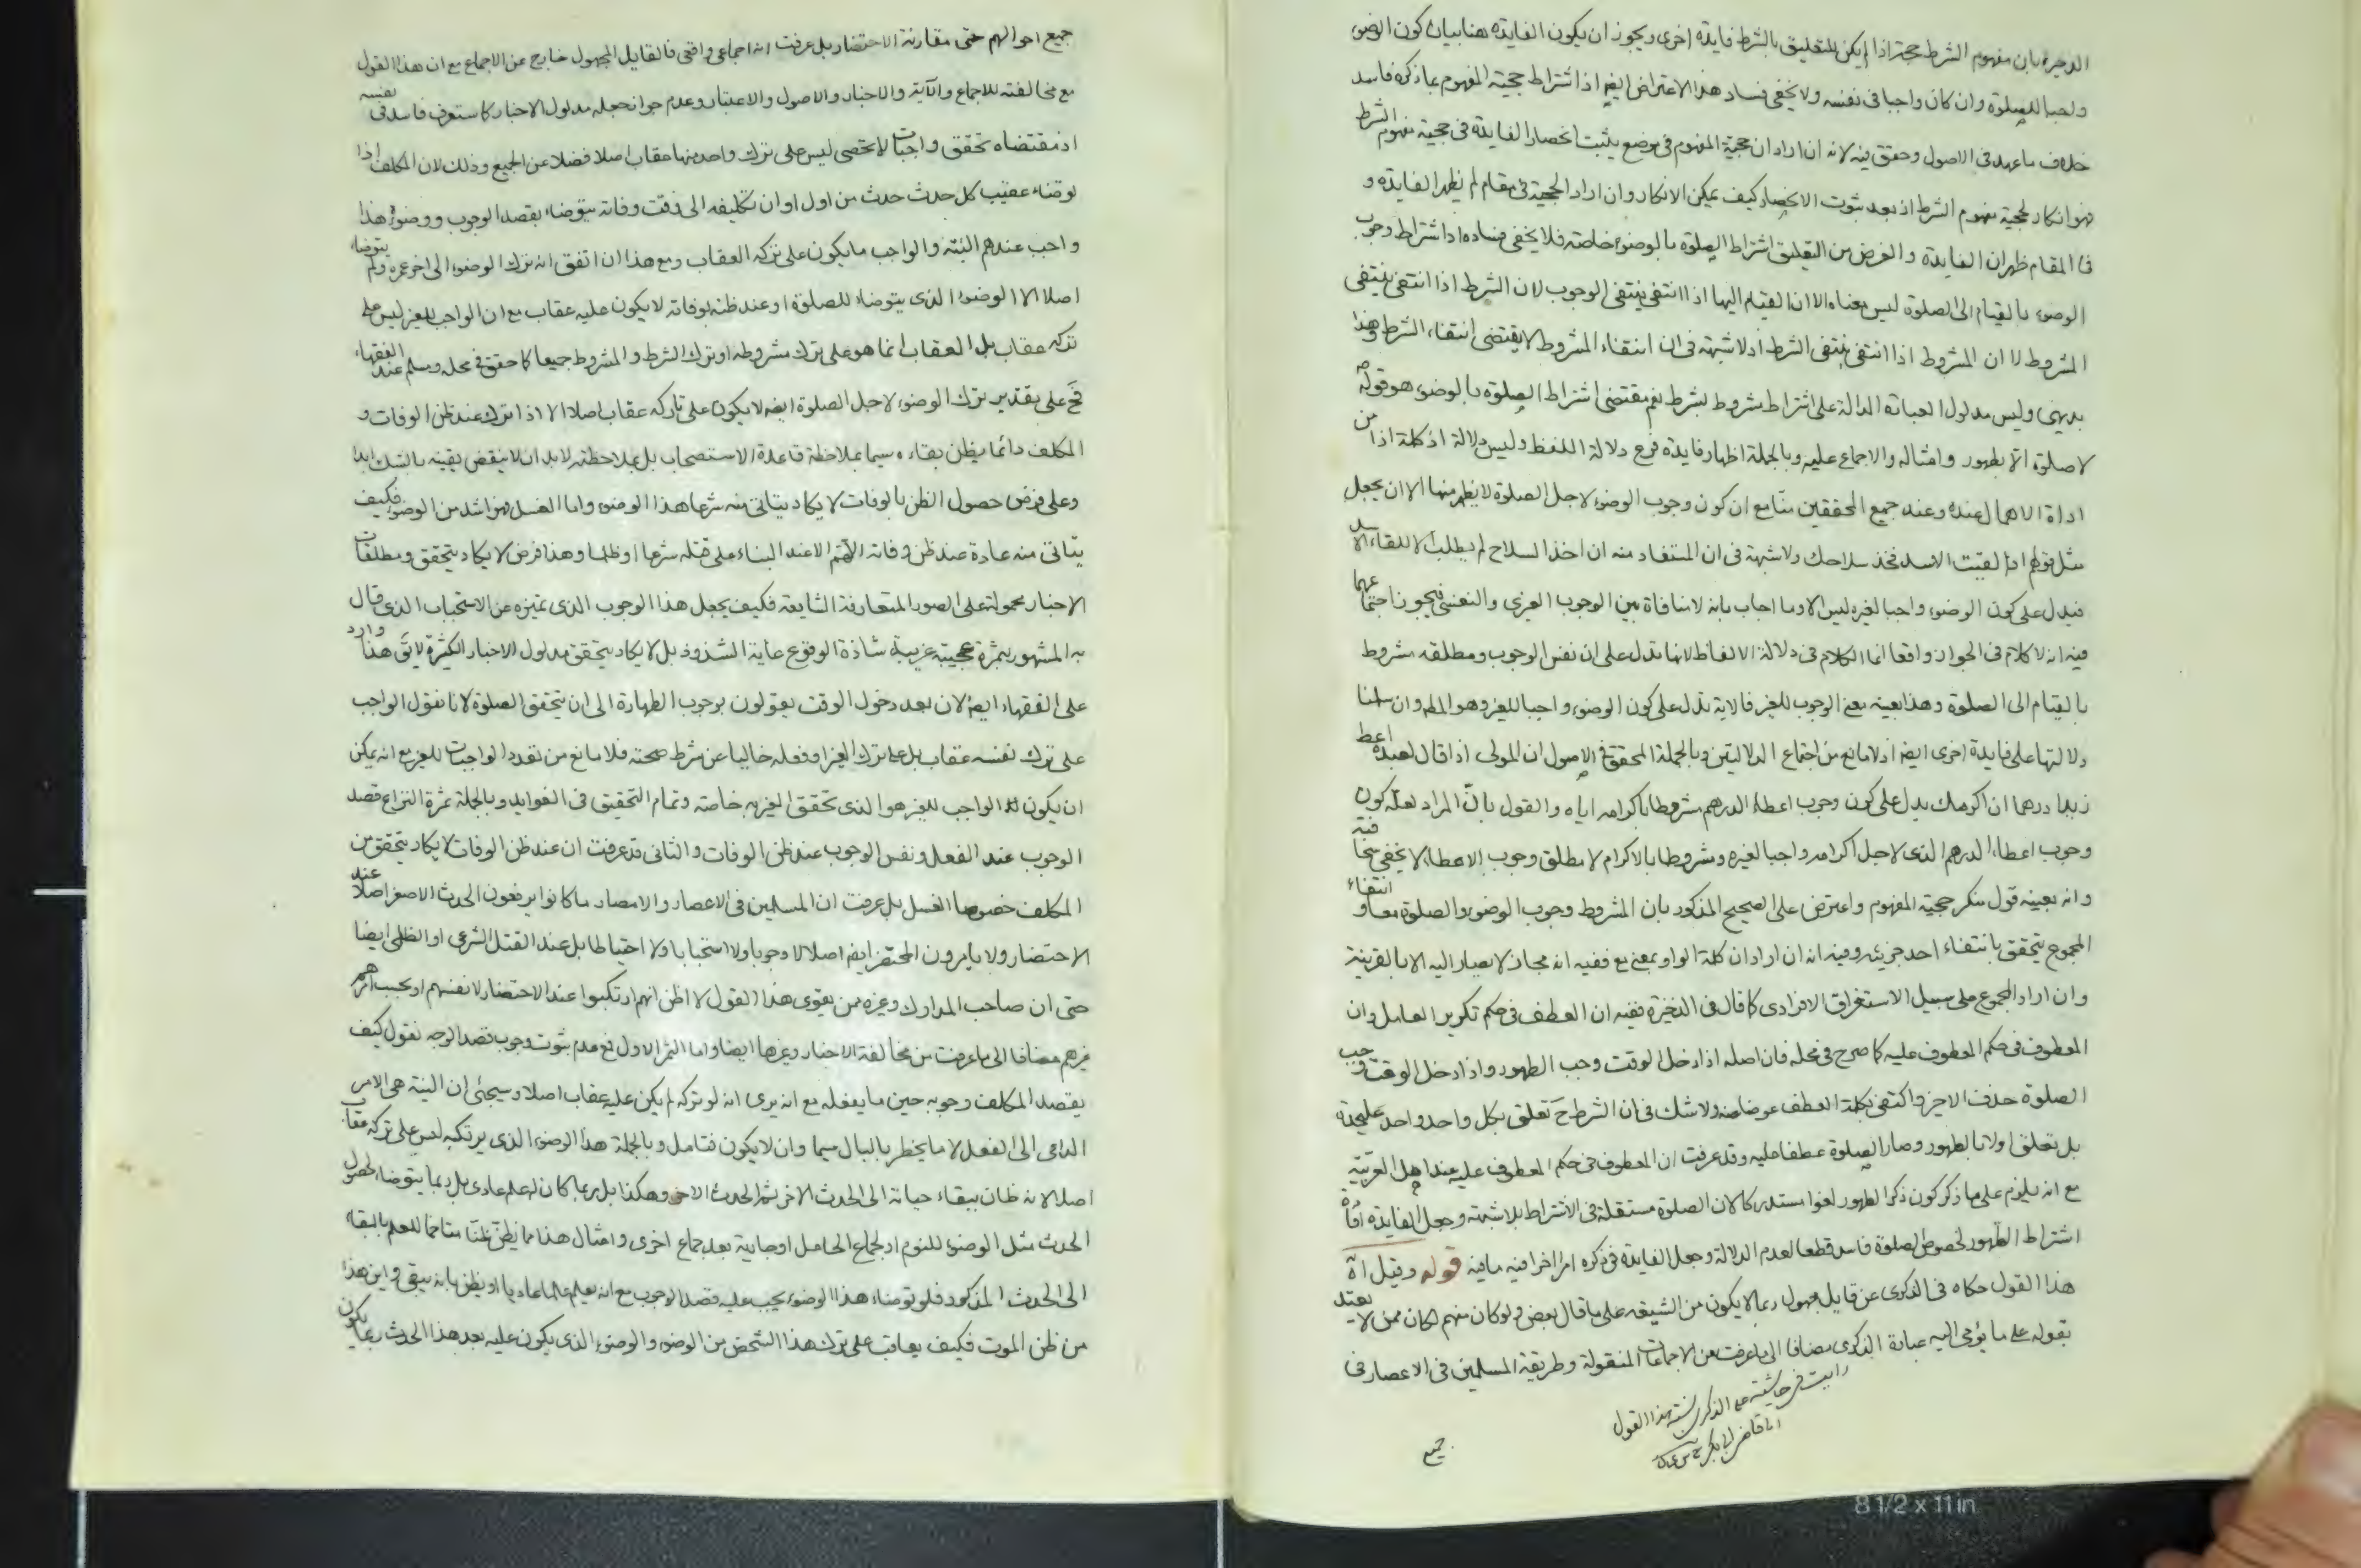 الذخيرة بان مفهوم الشرط حجة اذا لم يكن للتعليق بالشرط فايدة اخرى ويجوز ان يكون الفايدة هنا بيان كون الوضوء
واجبا للصلوة وان كان واجبا في نفسه ولا يخفى فساد هذا الاعتراض ايضا اذ اشتراط حجية المفهوم بما ذكره فاسد
خلاف ما عهد في الاصول وحقق فيه لانه ان اراد ان حجية المفهوم في موضع يثبت انحصار الفايدة في حجية مفهوم الشرط
فهو انكار لحجية مفهوم الشرط اذ بعد ثبوت الانحصار كيف يمكن الانكار وان اراد الحجية في مقام لم يظهر الفايدة و
في المقام ظهران الفايدة والغرض من التعليق اشتراط الصلوة بالوضوء خاصة فلا يخفى فساده اذ اشتراط وجوب
الوضوء بالقيام الى الصلوة ليس معناه الا ان القيام اليها اذا انتفى ينتفى الوجوب لان الشرط اذا انتفى ينتفى
المشروط لا ان المشروط اذا انتفى ينتفى الشرط اذ لا شبهة في ان انتفاء المشروط لا يقتضى انتفاء الشرط وهذا
بديهى وليس مدلول العبارة الدالة على اشتراط مشروط بشرط نعم مقتضى اشتراط الصلوة بالوضوء هو قوله
لا صلوة الا بطهور وامثاله والاجماع عليه وبالجملة اظهار فايدة فرع دلالة اللفظ وليس دلالة اذ كلمة اذا من
اداة الاهمال عنده وعند جميع المحققين منا مع ان كون وجوب الوضوء لاجل الصلوة لا يظهر منها الا ان يجعل
مثل قولهم اذا لقيت الاسد فخذ سلاحك ولا شبهة في ان المستفاد منه ان اخذ السلاح لم يطلب الا للقاء الاسد
فيدل على كون الوضوء واجبا لغيره ليس الا وما اجاب بانه لا منافاة بين الوجوب الغيري والنفسي فيجوز اجتماعهما
فيه انه لا كلام في الجواز واقعا انما الكلام في دلالة الالفاظ لانها تدل على ان نفس الوجوب ومطلقه مشروط
بالقيام الى الصلوة وهذا بعينه معنى الوجوب للغير فالاية تدل على كون الوضوء واجبا للغير وهو المط وان سلمنا
دلالتها على فايدة اخرى ايضا اذ لا مانع من اجتماع الدلالتين وبالجملة المحقق في الاصول ان المولى اذا قال لعبده اعط
زيدا درهما ان اكرمك يدل على كون وجوب اعطاء الدرهم مشروطا باكرامه اياه والقول بان المراد لعله كون
وجوب اعطاء الدرهم الذى لاجل اكرامه واجبا لغيره ومشروطا بالاكرام لا مطلق وجوب الاعطاء لا يخفى ما فيه
وانه بعينه قول منكر حجية المفهوم واعترض على الصحيح المذكور بان المشروط وجوب الوضوء والصلوة معا و انتفاء
المجموع يتحقق بانتفاء احد جزئيه وفيه انه ان اراد ان كلمة الواو بمعنى مع ففيه انه مجاز لا يصار اليه الا بالقرينة
وان اراد المجموع على سبيل الاستغراق الافرادى كما قال في الذخيرة ففيه ان العطف في حكم تكرير العامل وان
المعطوف في حكم المعطوف عليه كما صرح في محله فان اصله اذا دخل الوقت وجب الطهور واذا دخل الوقت وجب
الصلوة حذف الاخير واكتفى بكلمة العطف عوضا عنه ولا شك في ان الشرط ح تعلق بكل واحد واحد عليحدة
بل تعلق اولا بالطهور وصار الصلوة عطفا عليه وقد عرفت ان المعطوف في حكم المعطوف عليه عند اهل العربية
مع انه يلزم على ما ذكر كون ذكر الطهور لغوا مستدركا لان الصلوة مستقلة في الاشتراط بلا شبهة وجعل الفايدة افادة
اشتراط الطهور لخصوص الصلوة فاسد قطعا لعدم الدلالة وجعل الفايدة في ذكره امرا اخر فيه ما فيه قوله وقيل اه
هذا القول حكاه في الذكرى عن قايل مجهول ربما لا يكون من الشيعة على ما قال بعض ولو كان منهم لكان ممن لا يعتد
بقوله على ما يؤمى اليه عبارة الذكرى مضافا الى ما عرفت من الاجماعات المنقولة وطريقة المسلمين في الاعصار في
رايت في حاشية على الذكرى نسبة هذا القول
الى القاضى ابى بكر
جميع
جميع احوالهم حتى مقارنة الاحتضار بل عرفت انه اجماعى واقعى فالقايل المجهول خارج عن الاجماع مع ان هذا القول
مع مخالفته للاجماع والآية والاخبار والاصول والاعتبار وعدم جواز جعله مدلول الاخبار كما ستعرف فاسد في نفسه
اذ مقتضاه تحقق واجبات لا تحصى ليس على ترك واحد منها عقاب اصلا فضلا عن الجميع وذلك لان المكلف اذا
توضاء عقيب كل حدث حدث من اول اوان تكليفه الى وقت وفاته يتوضاء بقصد الوجوب ووضوئه هذا
واجب عندهم البتة والواجب ما يكون على تركه العقاب ومع هذا ان اتفق انه ترك الوضوء الى اخر عمره ولم يتوضاء
اصلا الا الوضوء الذى يتوضاء للصلوة او عند ظنه بوفاته لا يكون عليه عقاب مع ان الواجب للغير ليس على
تركه عقاب بل العقاب انما هو على ترك مشروطه او ترك الشرط والمشروط جميعا كما حقق في محله ومسلم عند الفقهاء
فح على تقدير ترك الوضوء لاجل الصلوة ايضا لا يكون على تاركه عقاب اصلا الا اذا ترك عند ظن الوفات و
المكلف دائما يظن بقاءه سيما بملاحظة قاعدة الاستصحاب بل بملاحظته لا بد ان لا ينقض يقينه بالشك ابدا
وعلى فرض حصول الظن بالوفات لا يكاد يتاتى منه شرعا هذا الوضوء واما الغسل فهو اشد من الوضوء فكيف
يتاتى منه عادة عند ظن وفاته اللهم الا عند البناء على قتله شرعا او ظلما وهذا فرض لا يكاد يتحقق ومطلقات
الاخبار محمولة على الصور المتعارفة الشايعة فكيف يجعل هذا الوجوب الذى تميزه عن الاستحباب الذى قال
به المشهور بثمرة عجيبة غريبة شاذة الوقوع غاية الشذوذ بل لا يكاد يتحقق مدلول الاخبار الكثيرة لا يق هذا وارد
على الفقهاء ايضا لان بعد دخول الوقت يقولون بوجوب الطهارة الى ان يتحقق الصلوة لانا نقول الواجب
على ترك نفسه عقاب بل على ترك الغير او فعله خاليا عن شرط صحته فلا مانع من تعدد الواجبات للغير مع انه يمكن
ان يكون الواجب للغير هو الذى تحقق الغير به خاصة وتمام التحقيق في الفوايد وبالجملة ثمرة النزاع قصد
الوجوب عند الفعل ونفس الوجوب عند ظن الوفات والثانى قد عرفت ان عند ظن الوفات لا يكاد يتحقق من
المكلف خصوصا الغسل بل عرفت ان المسلمين في الاعصار والامصار ما كانوا يرفعون الحدث الاصغر اصلا عند
الاحتضار ولا يامرون المحتضر ايضا اصلا لا وجوبا ولا استحبابا ولا احتياطا بل عند القتل الشرعى او الظلمى ايضا
حتى ان صاحب المدارك وغيره ممن يقوى هذا القول لا اظن انهم ارتكبوا عند الاحتضار لانفسهم او بحسب امرهم
غيرهم مضافا الى ما عرفت من مخالفة الاخبار وغيرها ايضا واما الثمر الاول فمع عدم ثبوت وجوب قصد الوجه نقول كيف
يقصد المكلف وجوبه حين ما يفعله مع انه يرى انه لو تركه لم يكن عليه عقاب اصلا وسيجئ ان النية هى الامر
الداعى الى الفعل لا ما يخطر بالبال سيما وان لا يكون فتامل وبالجملة هذا الوضوء الذى يرتكبه ليس على تركه عقاب
اصلا لانه ظان ببقاء حياته الى الحدث الاخر ثم الحدث الاخر وهكذا بل ربما كان له علم عادى بل ربما يتوضاء لحصول
الحدث مثل الوضوء للنوم او لجماع الحامل او جارية بعد جماع اخرى وامثال هذا مما يظن ظنا متاخما للعلم بالبقاء
الى الحدث المذكور فلو توضاء هذا الوضوء يجب عليه قصد الوجوب مع انه يعلم علما عاديا او يظن بانه يبقى واين هذا
من ظن الموت فكيف يعاقب على ترك هذا الشخص من الوضوء والوضوء الذى يكون عليه بعد هذا الحدث ربما يكون
8 1/2 x 11 in